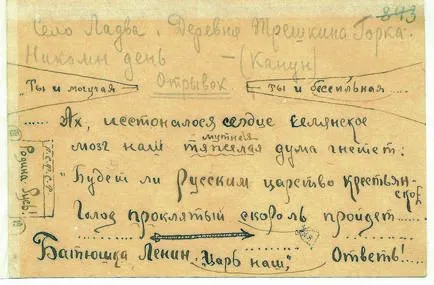 843
Село Ладва. Деревня Трешкина Горка.
Николин день — (Канун)
Отрывок
„Ты и могучая ты и бессильная....
..... Ах, исстоналося сердце селянское
мутная
мозг наш тяжелая дума гнетет:
"Будет ли Русским царство крестьянское,
Голод проклятый скороль пройдет.....
Батюшка Ленин „царь наш," Ответь!....
Родина Русь!